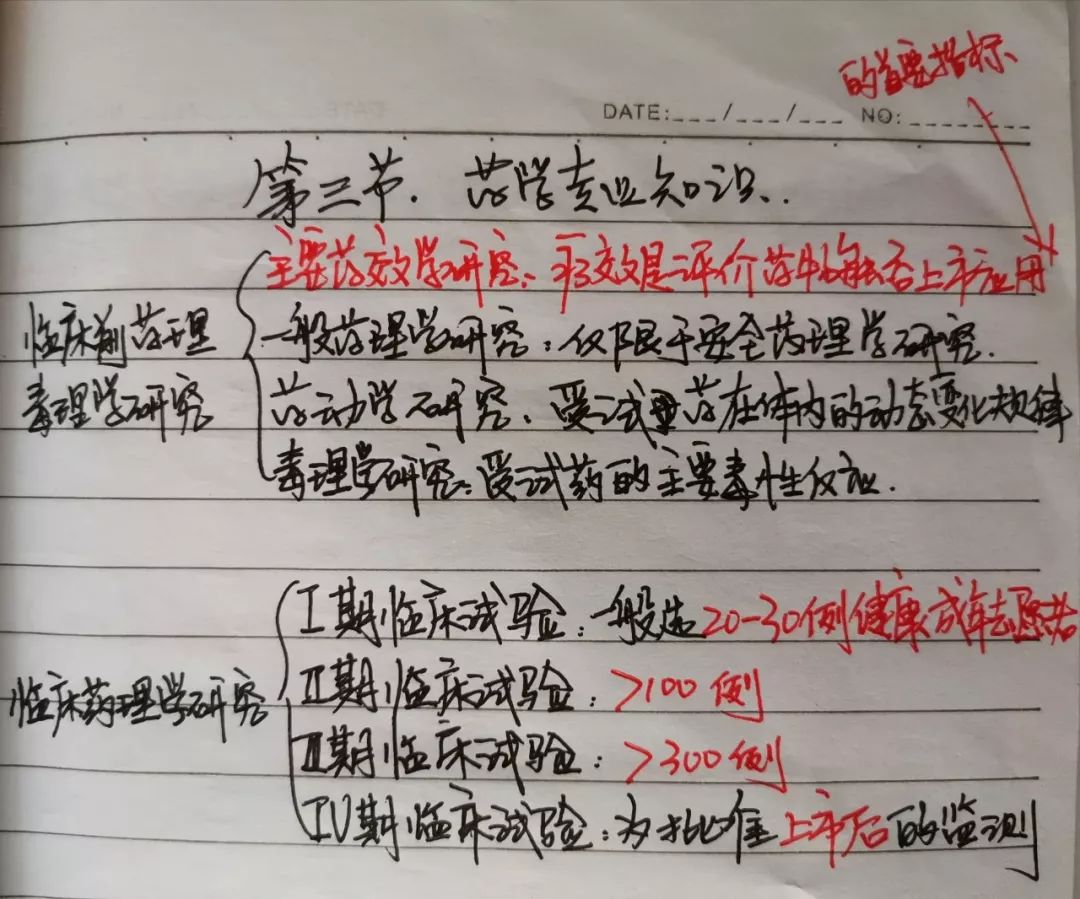 的首要指标
DATE:___/___/___ NO:________
第三节. 药学专业知识.
主要药效学研究: 药效是评价药物能否上市应用
临床前药理
一般药理学研究: 仅限于安全药理学研究.
毒理学研究
药动学研究: 受试药在体内的动态变化规律
毒理学研究: 受试药的主要毒性反应.
I期临床试验: 一般选20-30例健康成年志愿者
临床药理学研究
II期临床试验: >100例
III期临床试验: >300例
IV期临床试验: 为批准上市后的监测